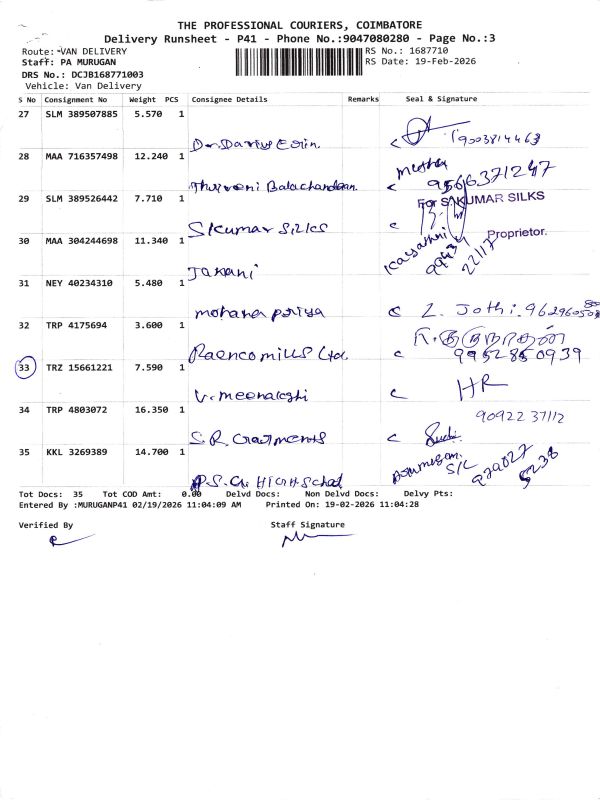 THE PROFESSIONAL COURIERS, COIMBATORE
Delivery Runsheet - P41 - Phone No.:9047080280 - Page No.:3
Route: VAN DELIVERY RS No.: 1687710
Staff: PA MURUGAN RS Date: 19-Feb-2026
DRS No.: DCJB168771003
Vehicle: Van Delivery
S No Consignment No Weight PCS Consignee Details Remarks Seal & Signature
27 SLM 389507885 5.570 1
28 MAA 716357498 12.240 1
Thiriveni Balachandean. 9566371247
29 SLM 389526442 7.710 1 For S.KUMAR SILKS
S Kumar Silks
Proprietor.
30 MAA 304244698 11.340 1
Janani
31 NEY 40234310 5.480 1
mohana priya Z. Jothi.
32 TRP 4175694 3.600 1
Raenco mills Ltd. 9952850939
33 TRZ 15661221 7.590 1 HR
V. meenakshi
34 TRP 4803072 16.350 1 90922 37112
S.R. Garments
35 KKL 3269389 14.700 1
P.S.G. High School
Tot Docs: 35 Tot COD Amt: 0.00 Delvd Docs: Non Delvd Docs: Delvy Pts:
Entered By :MURUGANP41 02/19/2026 11:04:09 AM Printed On: 19-02-2026 11:04:28
Verified By Staff Signature